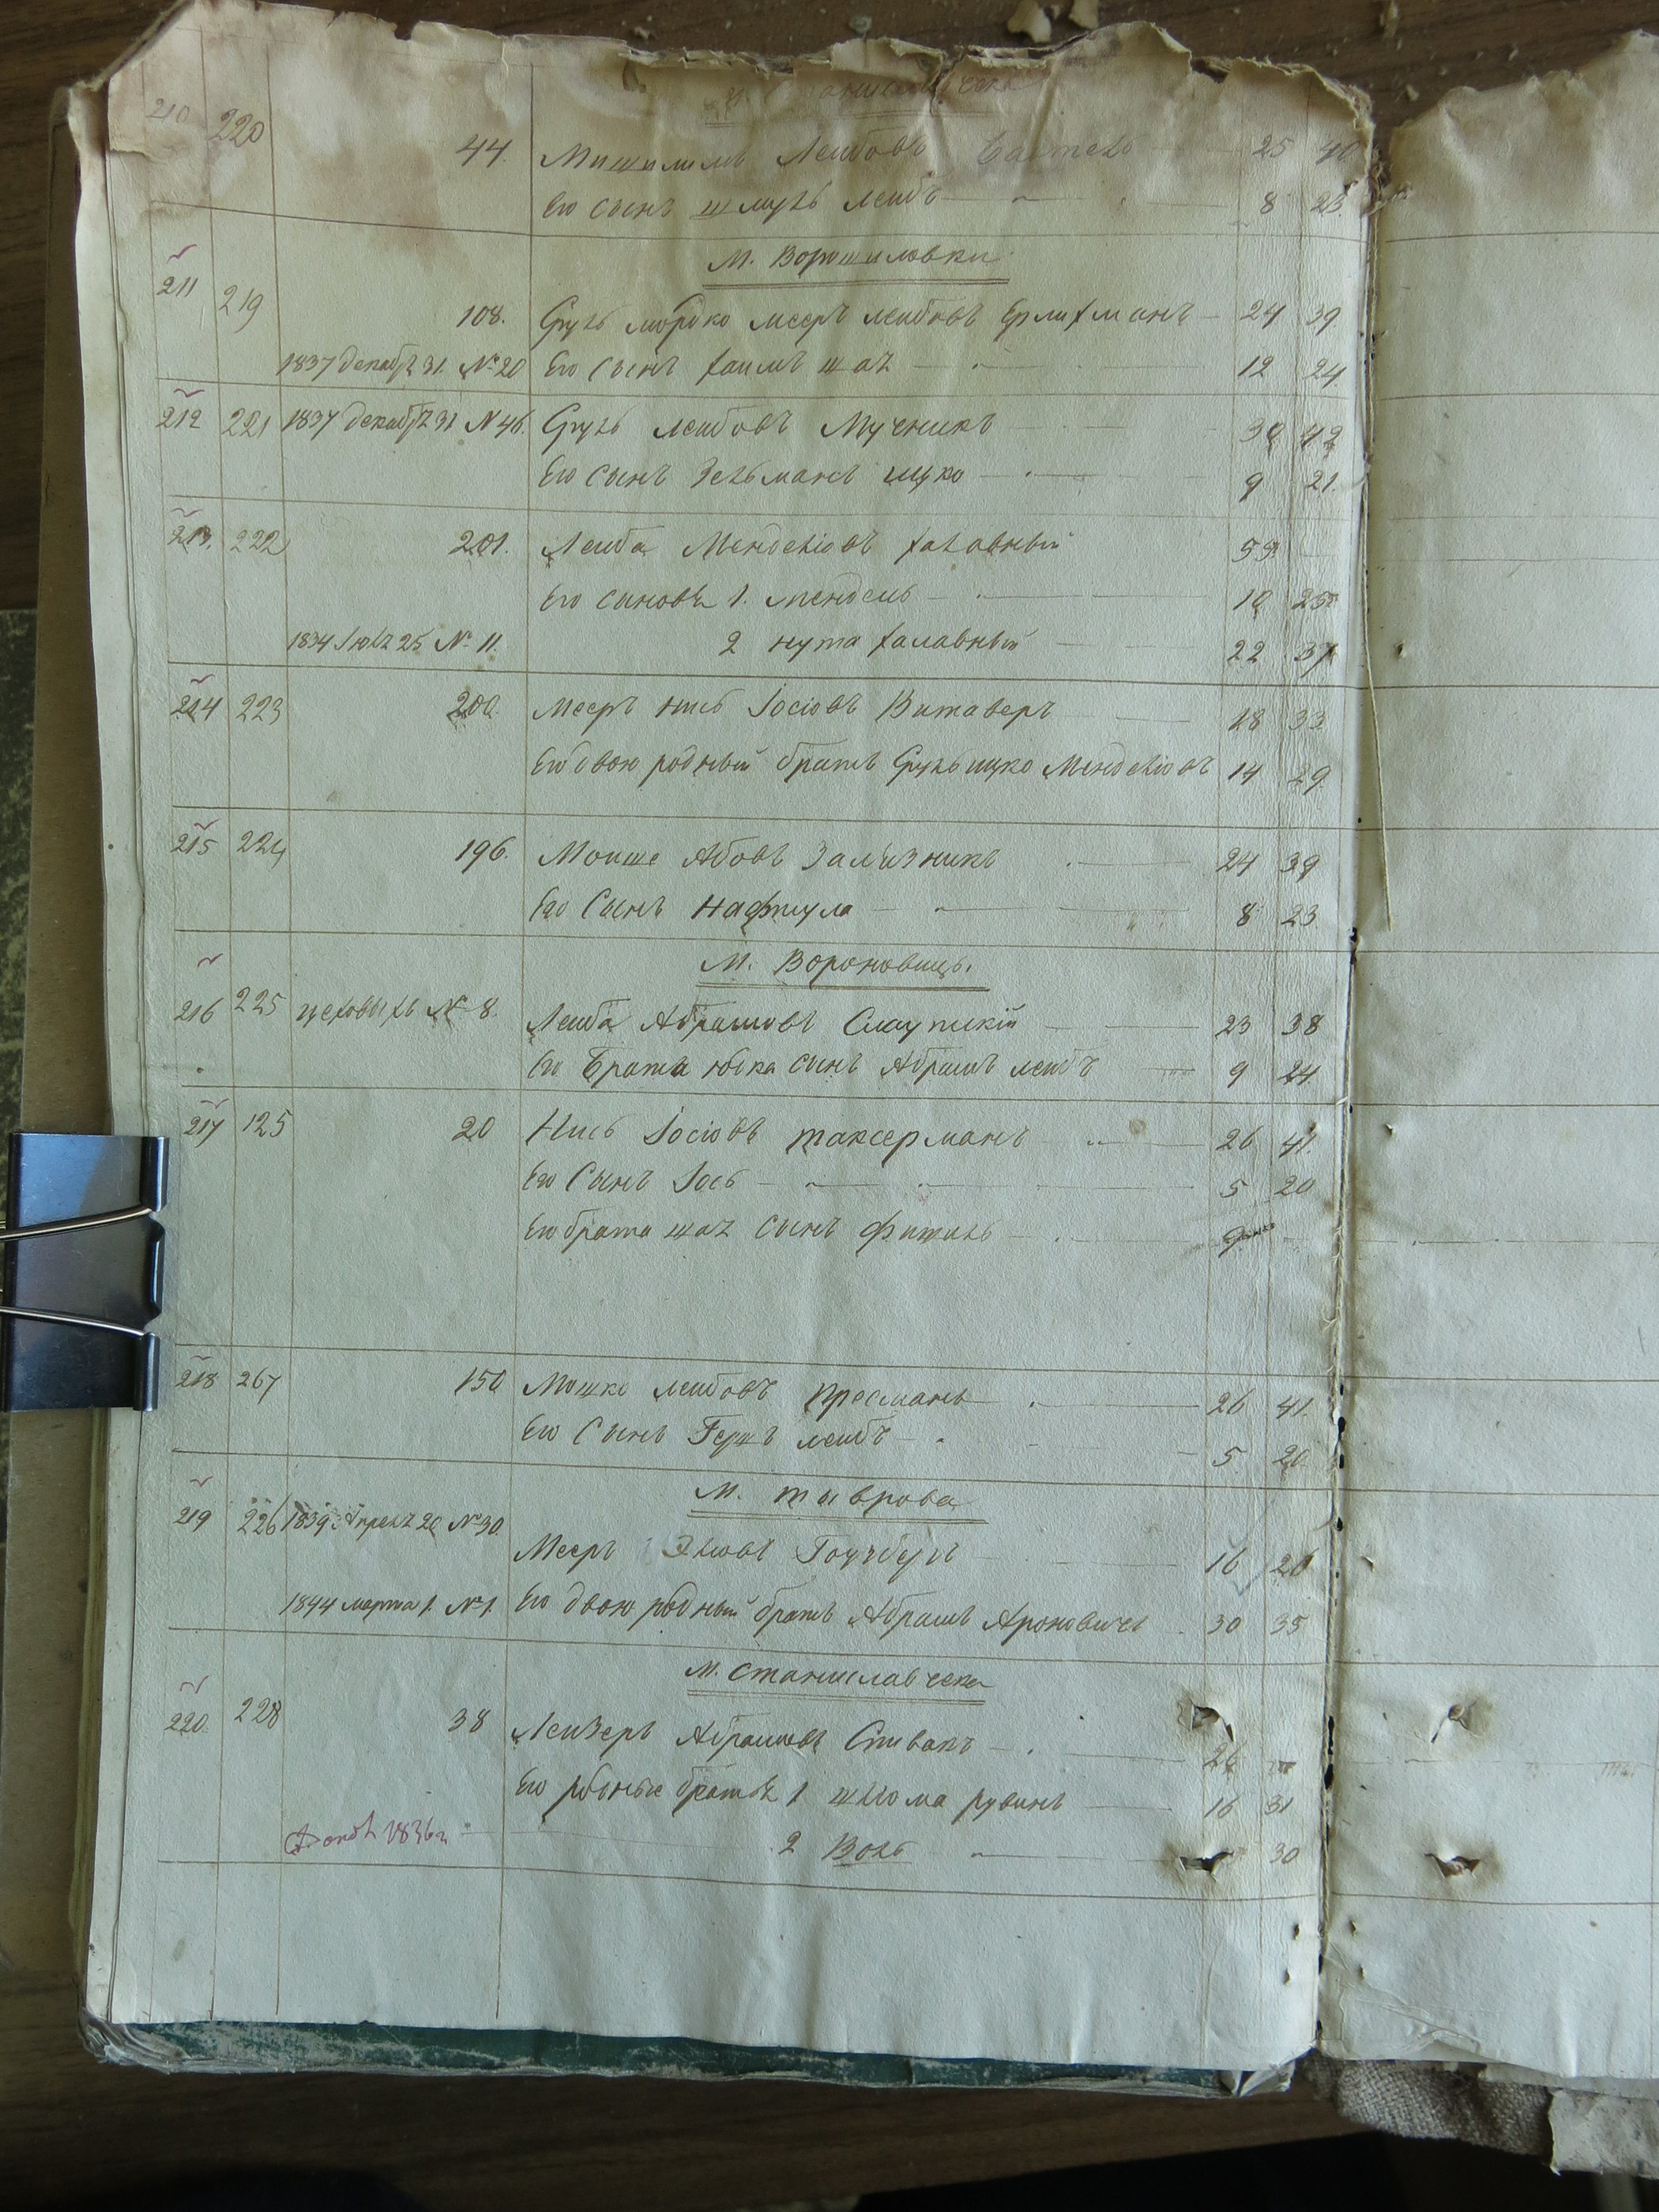 210 220 44. Мишилимъ Лейбовъ 25 40
Его сынъ Шмуль Лейбъ 8 23.
М. Ворошиловки
211 219 108. Сруль Мордко Мееръ Лейбовъ Ерлихманъ 24 39
1837 декабр. 31. № 20 Его сынъ Хаимъ Шаг 12 24
212 221 1837 декабр. 31 № 46. Сруль Лейбовъ Мучникъ 42
Его сынъ Зельманъ Ицко 9 21.
213. 222 201. Лейба Менделіовъ Халавный 59
Его сыновья 1. Мендель 10 25
1834 Іюля 25 № 11. 2 Нута Халавный 22 37
214 223 200. Мееръ Нись Іосіовъ Витаверъ 18 33
Его двоюродный братъ Сруль Ицко Менделіовъ 14 29
215 224 196. Моише Абовъ Зализникъ 24 39
Его Сынъ Нафтула 8 23
М. Вороновицъ.
216 225 цеховыхъ № 8. Лейба Абрамовъ Слауцкій 23 38
Его Брата Юска сынъ Абрамъ Лейбъ 9 24
217 125 20 Нись Іосіовъ Таксерманъ 26 41.
Его Сынъ Іось 5 20
Его брата Шаг сынъ Фишель 9
218 267 150 Мошко Лейбовъ Пресманъ 26 41.
Его Сынъ Гершъ Лейбъ 5 20
М. Тыврова
219 226 1839 Апреля 20 № 30. Мееръ 16 26
1844 марта 1. № 1. Его двоюродный братъ Абрамъ Ароновичъ 30 35
М. Станиславчека
220. 228 38 Лейзеръ Абрамовъ Спивакъ 26
Его родные братья 1 Шлома Рувинъ 16 31
1836 г. 2 Воль 30